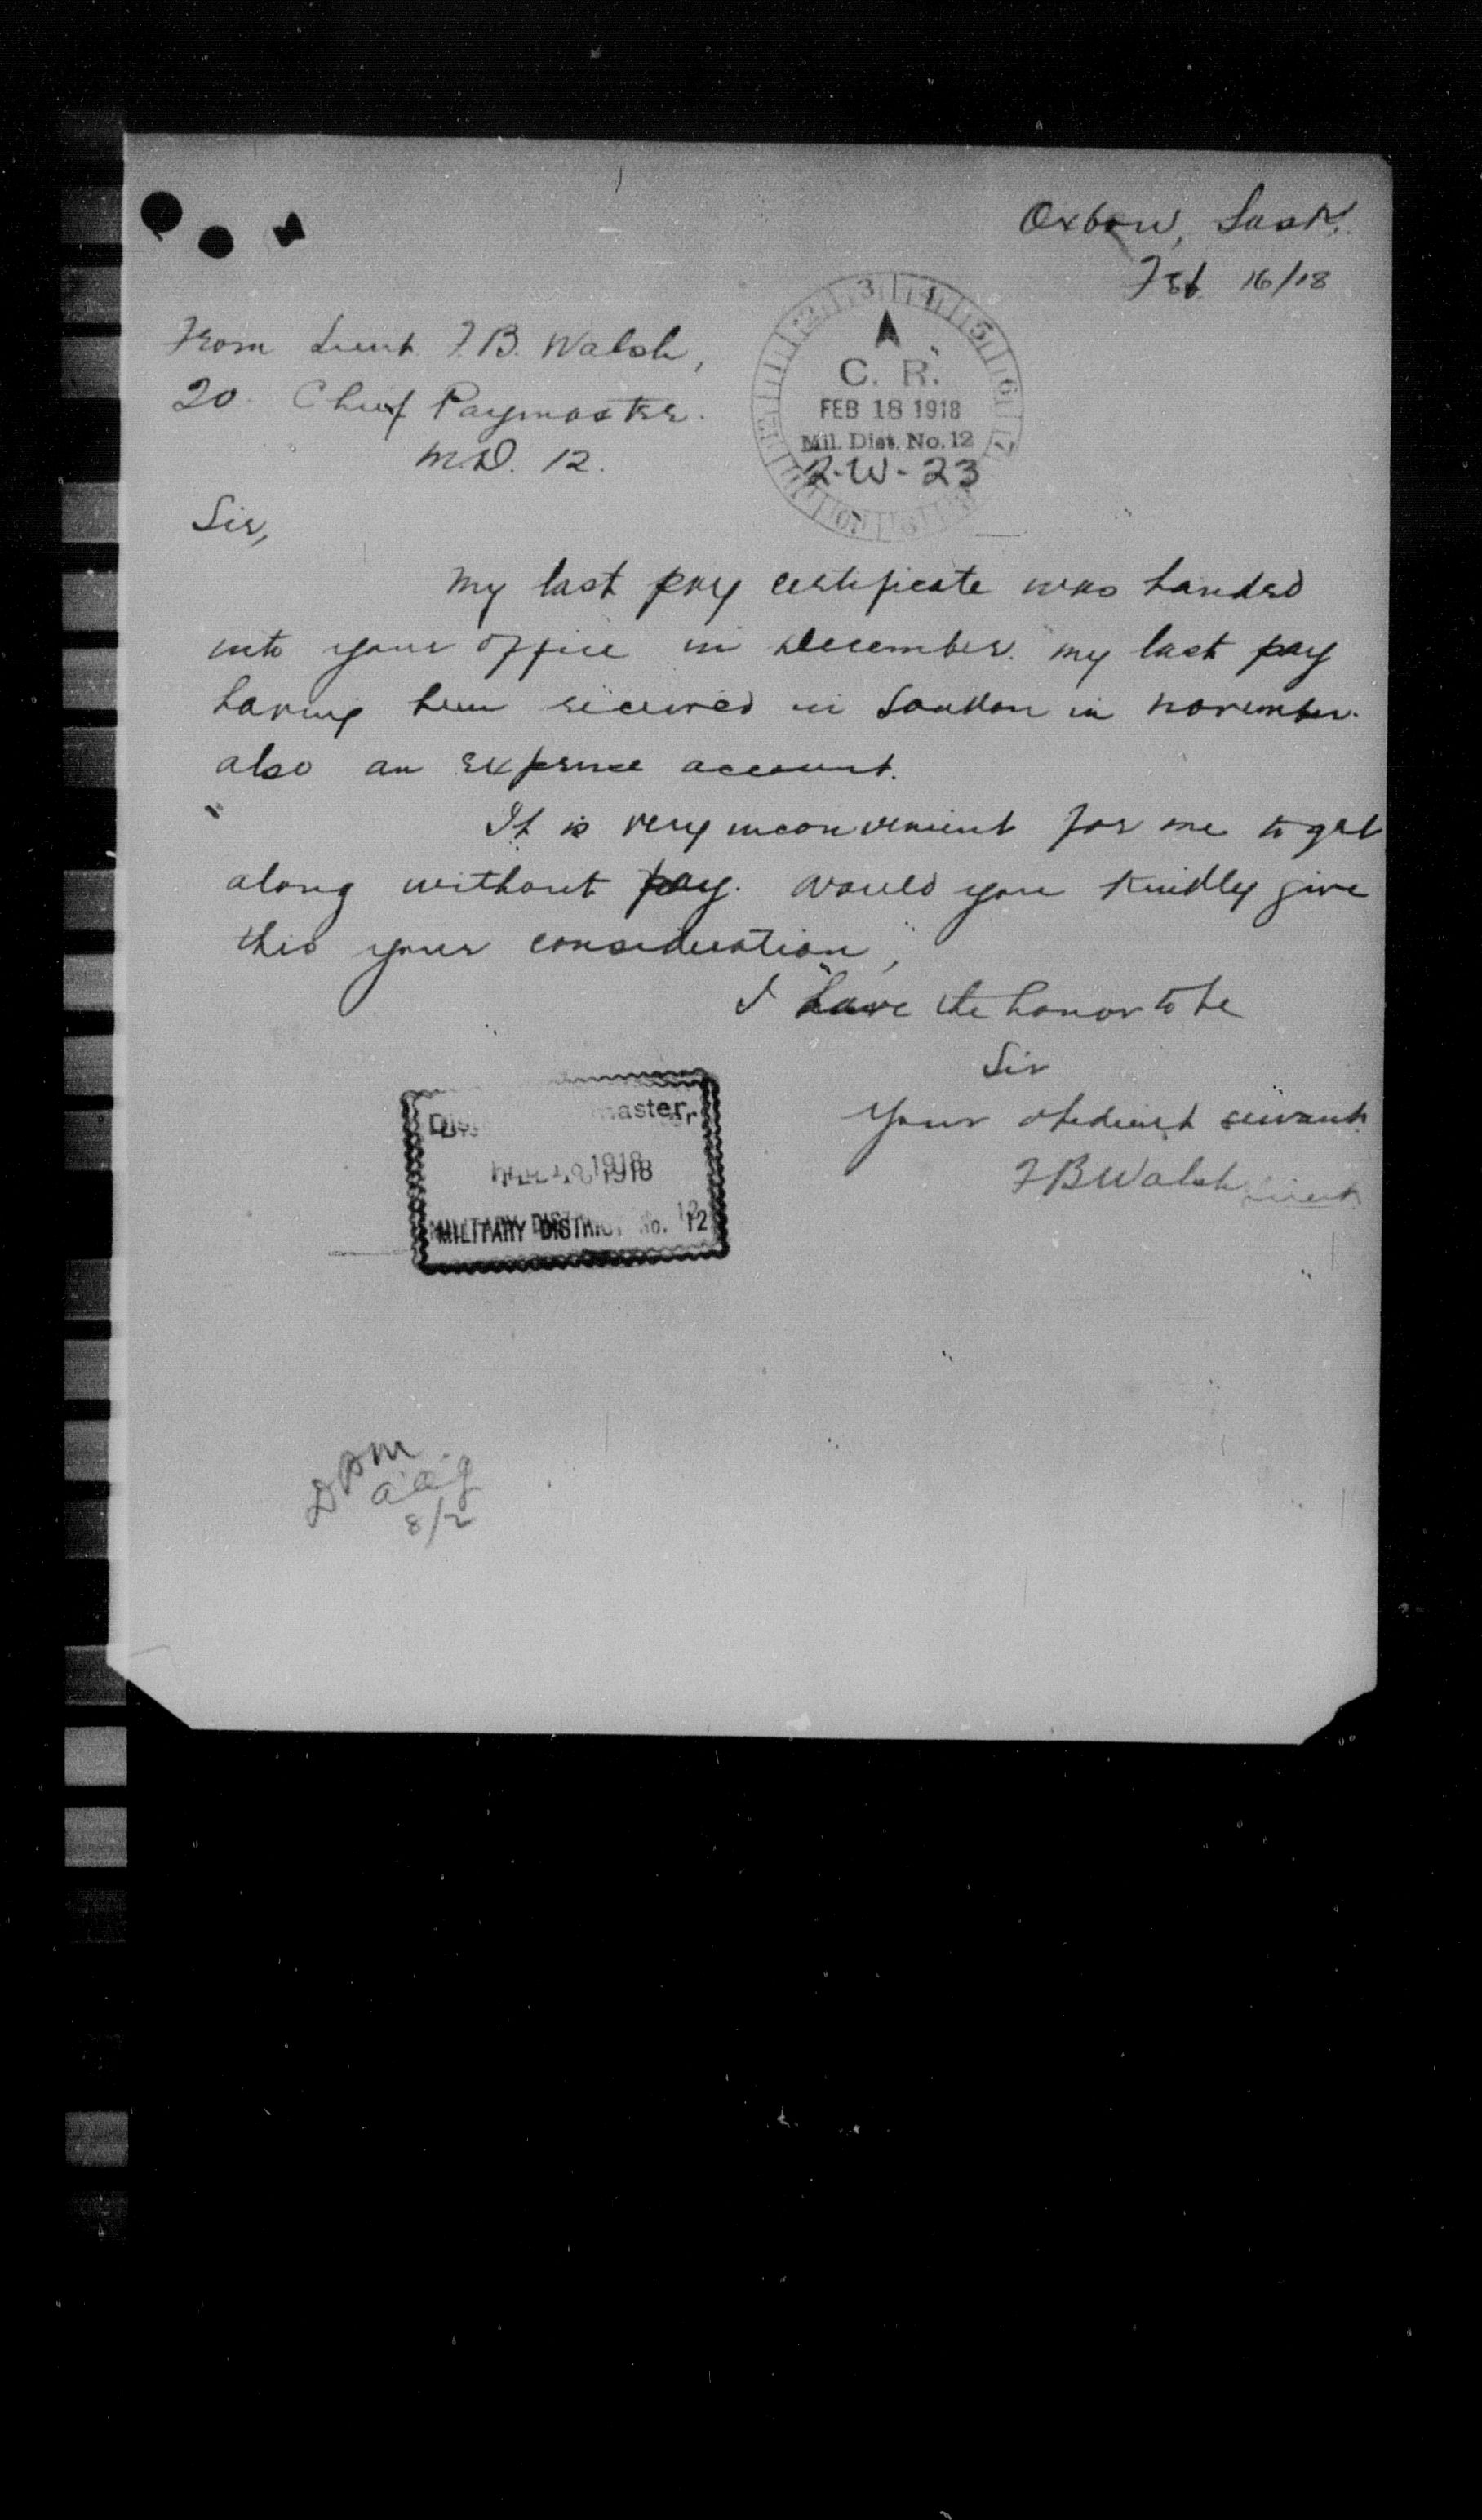 Oxbow, Sask.
Feb 16/18
From Lieut. F.B. Walsh,
To Chief Paymaster.
M.D. 12.
3 4 5 6 7
C. R.
FEB 18 1918
Mil. Dist. No. 12
2-W-23
Sir,
My last pay certificate was handed
into your office in December. my last pay
having been received in London in November.
also an expense account.
It is very inconvenient for me to get
along without pay. Would you kindly give
this your consideration,
I have the honor to be
Sir
Your obedient servant.
F B Walsh Lieut.
master,
1918
MILITARY DISTRICT No. 12
DPM
8/2